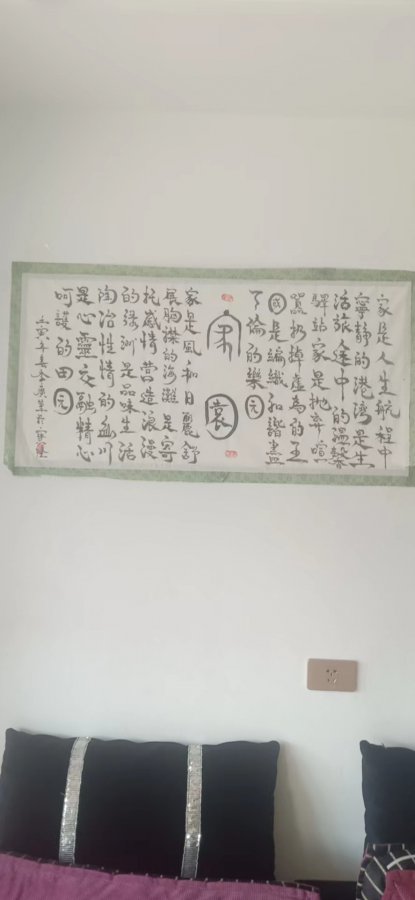 家是人生航程中
寧静的港湾是生
活旅途中的温馨
驛站家是抛弃喧
嚣扔掉虚為的王
国是編織和諧盡
了倫的樂园
家園
家是風和日麗舒
展胸襟的海灘是寄
托感情营造浪漫
的绿洲是品味生活
陶冶性情的幽川
是心靈交融精心
呵護的田园
壬寅年春